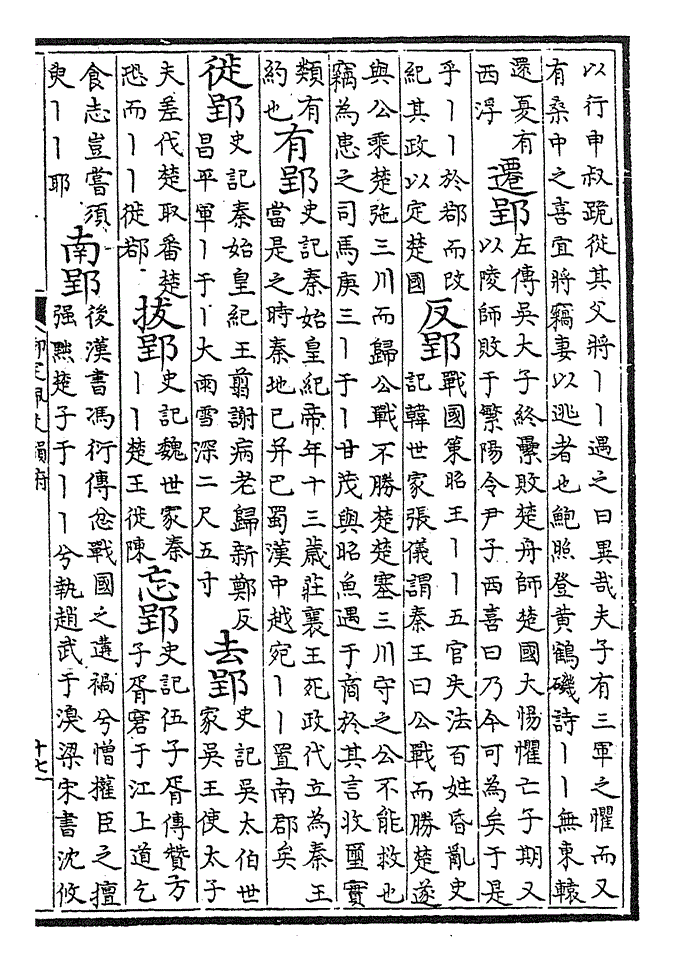 以行申叔跪從其父將丨丨遇之曰異哉夫子有三軍之懼而又
有桑中之喜宜將竊妻以逃者也鮑照登黄鶴磯詩丨丨無東轅
還憂有
西浮
遷郢
左傳吳大子終纍敗楚舟師楚國大惕懼亡子期又
以陵師敗于繁陽令尹子西喜曰乃今可為矣于是
乎丨丨於鄀而改
紀其政以定楚國
反郢
戰國策昭王丨丨五官失法百姓昏亂史
記韓世家張儀謂秦王曰公戰而勝楚遂
與公乘楚施三川而歸公戰不勝楚楚塞三川守之公不能救也
竊為患之司馬庚三丨于丨甘茂與昭魚遇于商於其言收璽實
類有
約也
有郢
史記秦始皇紀帝年十三歲莊襄王死政代立為秦王
當是之時秦地已并巴蜀漢中越宛丨丨置南郡矣
徙郢
史記秦始皇紀王翦謝病老歸新鄭反
昌平軍丨于丨大雨雪深二尺五寸
去郢
史記吳太伯世
家吳王使太子
夫差伐楚取番楚
恐而丨丨徙鄀
拔郢
史記魏世家秦
丨丨楚王徙陳
忘郢
史記伍子胥傳贊方
子胥窘于江上道乞
食志豈嘗須
臾丨丨耶
南郢
後漢書馮衍傳忿戰國之遘禍兮憎權臣之擅
强黜楚子于丨丨兮執趙武于溴梁宋書沈攸
十七